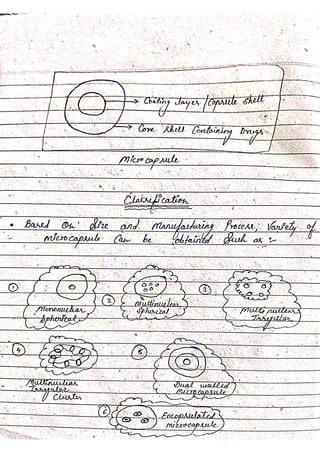 Coating layer / Capsule shell
Core shell Containing Drugs
Microcapsule
Classification
• Based On Size and Manufacturing Process, Variety of
microcapsule Can be obtained Such as :-
① Mononuclear
Spherical
② Multinuclear
Spherical
③ Multinuclear
Irregular
④ Multinuclear
Irregular
Cluster
⑤ Dual walled
Microcapsule
⑥ Encapsulated
microcapsule